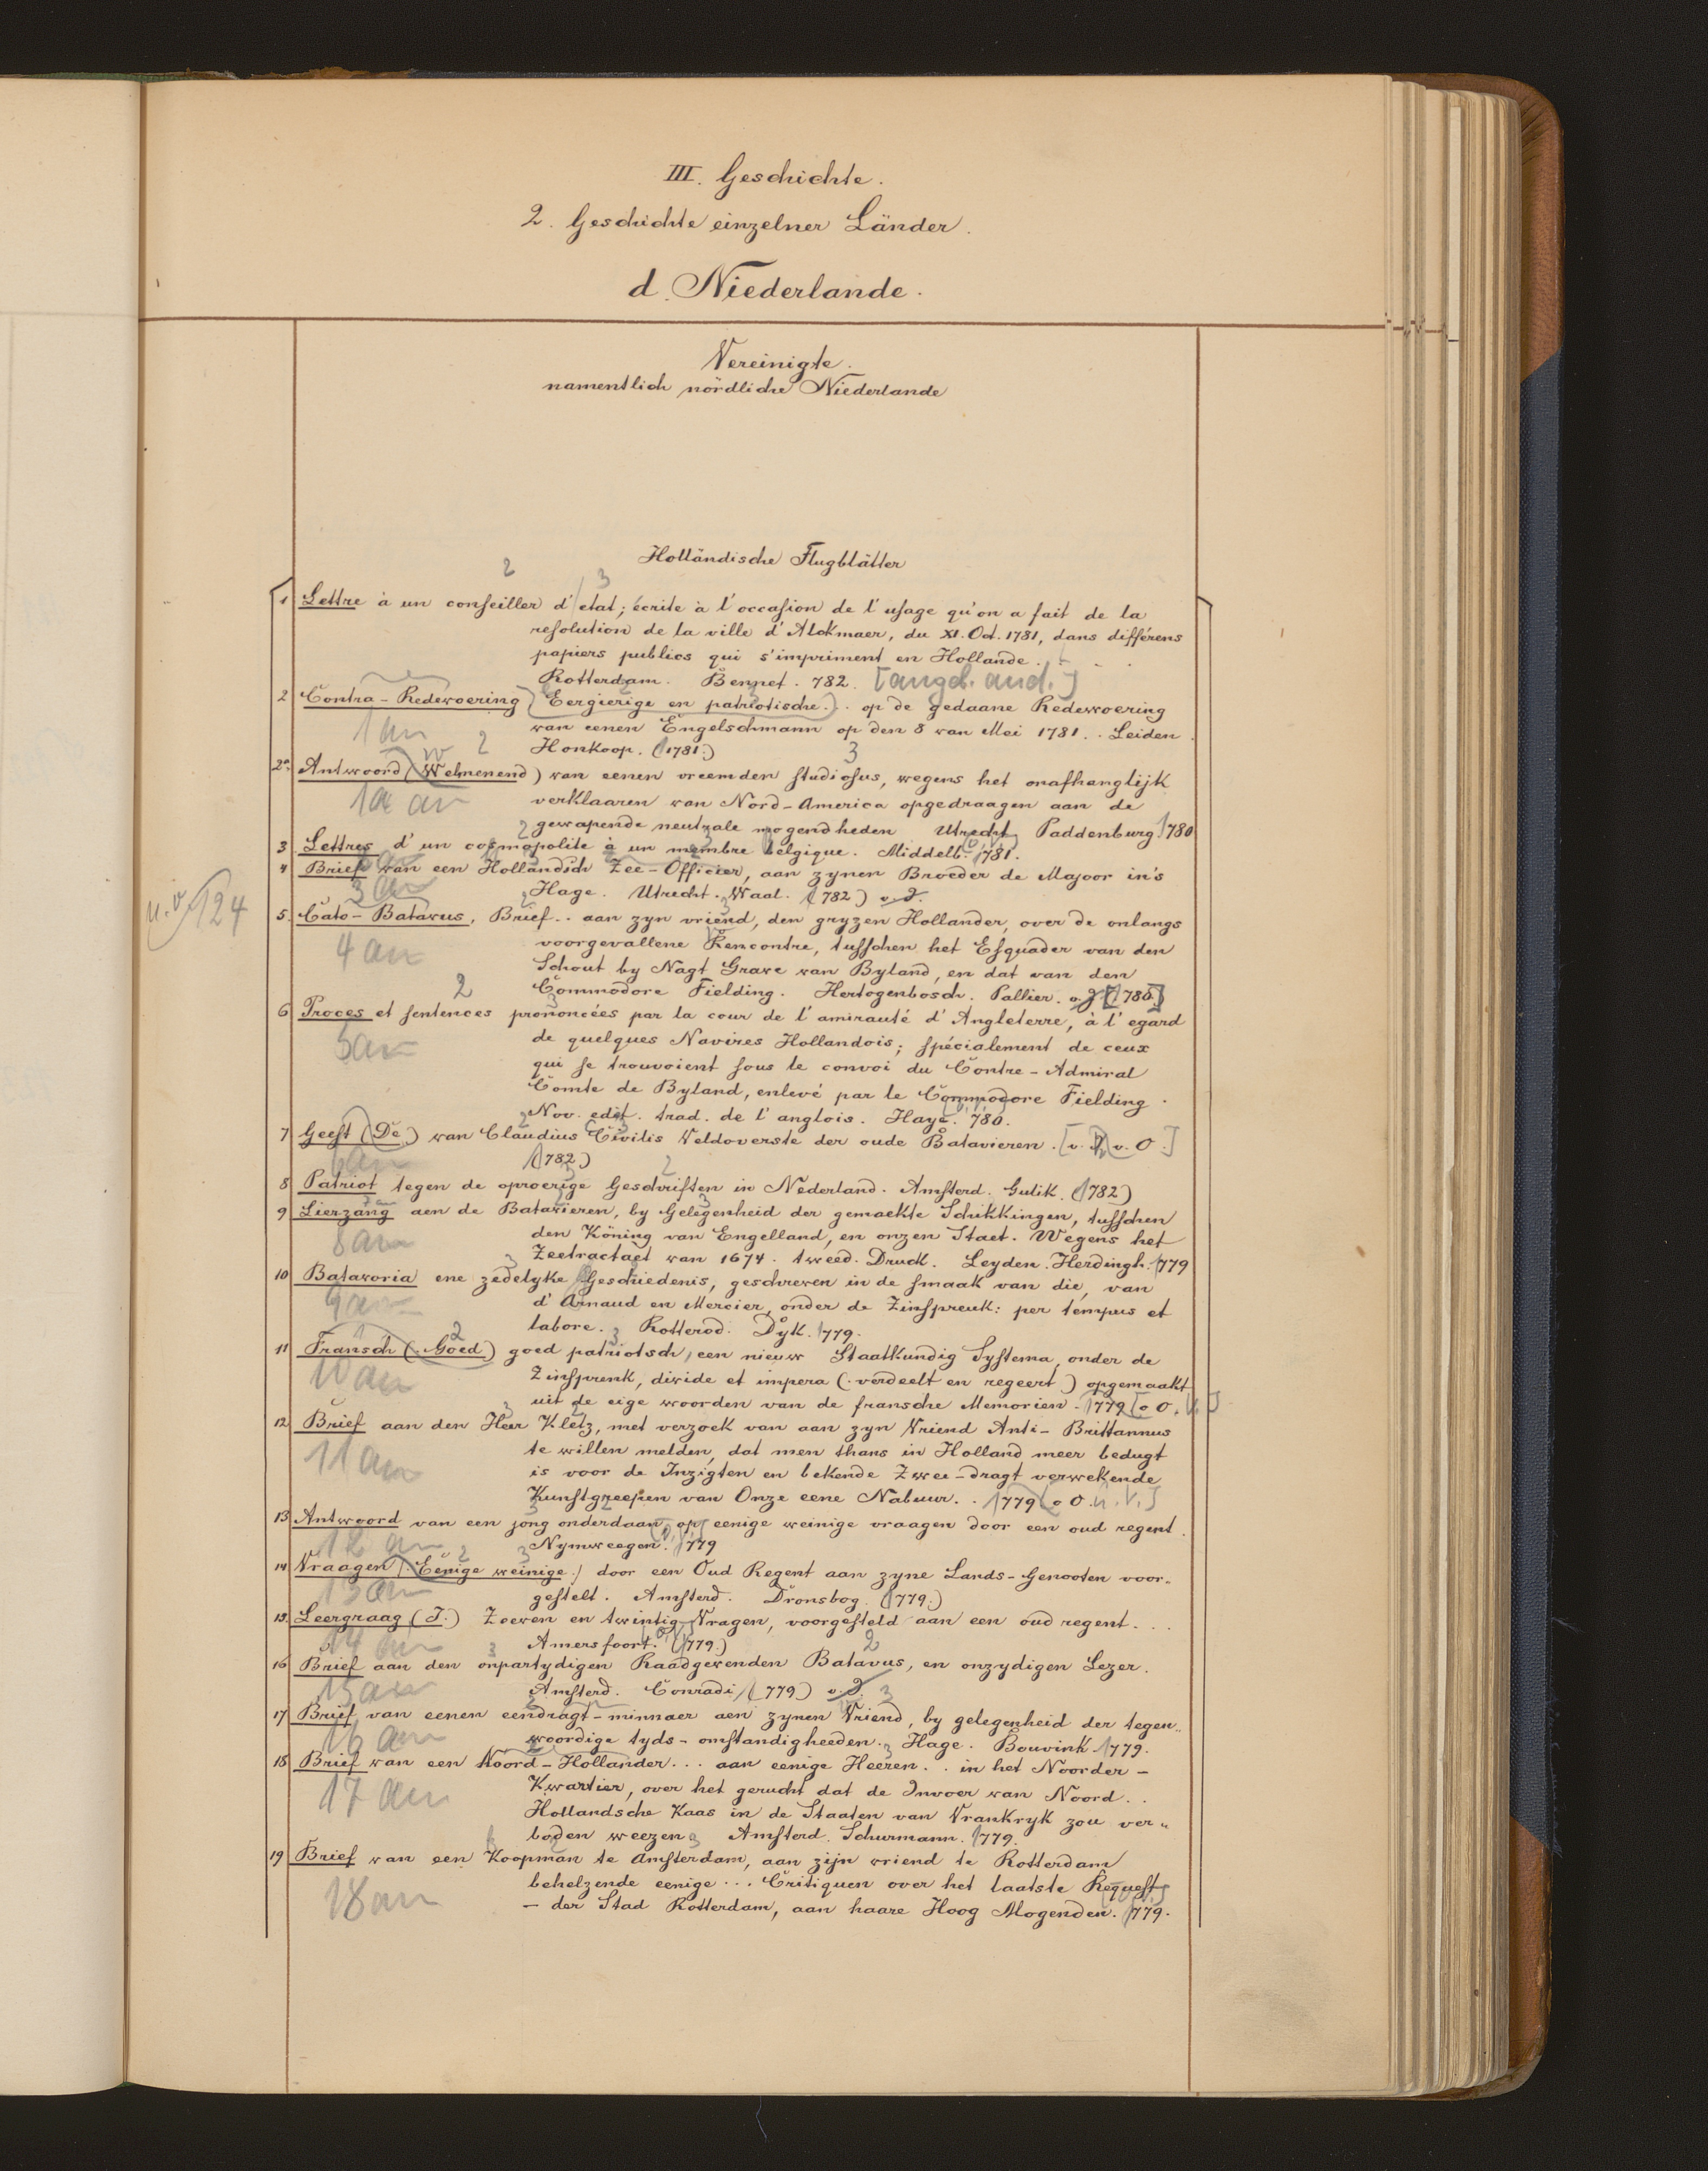 III. Geschichte.
2. Geschichte einzelner Länder.
d. Niederlande.
Vereinigte.
namentlich nördliche Niederlande
Holländische Flugblätter
1 Lettre à un conseiller d'etat; écrite à l'occasion de l'usage qu'on a fait de la
resolution de la ville d'Alckmaer, du XI. Oct. 1781, dans différens
papiers publics qui s'impriment en Hollande. . .
Rotterdam. Bennet. 782. [angeb. and.]
2 Contra-Redewoering (Eergierige en patriotische.) . op de gedaane Redewoering
1 an van eenen Engelschmann op den 8 van Mei 1781. . Leiden.
Honkoop. (1781.)
2a Antwoord (Welmenend) van eenen vreemden studiosus, wegens het onafhanglijk
1a an verklaaren van Nord-America opgedraagen aan de
gewapende neutrale mogendheden Utrecht Paddenburg 1780
3 Lettres d'un cosmopolite à un membre belgique. Middelb. 1781.
4 Brief van een Hollandsch Zee-Officier, aan zynen Broeder de Majoor in's
3 an Hage. Utrecht. Waal. (1782) o. J.
u. v. 124
5. Cato-Batavus, Brief. . aan zyn vriend, den gryzen Hollander, over de onlangs
4 an voorgevallene Rencontre, tusschen het Esquader van den
Schout by Nagt Grave van Byland, en dat van den
Commodore Fielding. Hertogenbosch. Pallier. o. J [1780.]
6 Proces et sentences prononcées par la cour de l'amirauté d'Angleterre, à l'egard
5 an de quelques Navires Hollandois; spécialement de ceux
qui se trouvoient sous le convoi du Contre-Admiral
Comte de Byland, enlevé par le Commodore Fielding.
Nov. edit. trad. de l'anglois. Haye. 780.
7 Geest (De) van Claudius Civilis Veldoverste der oude Batavieren. [v. O.]
6 an (1782)
8 Patriot tegen de oproerige Geschriften in Nederland. Amsterd. Gulik. (1782)
9 Lierzang aen de Batavieren, by Gelegenheid der gemaekte Schikkingen, tusschen
8 an den Köning van Engelland, en onzen Staet. Wegens het
Zeetractaet van 1674. tweed. Druck. Leyden. Herdingh. 1779
10 Batavoria ene zedelyke Geschiedenis, geschreven in de smaak van die, van
9 an d'Arnaud en Mercier, onder de Zinspreuk: per tempus et
labore. Rotterod. Dyk. 1779.
11 Fransch (Goed) goed patriotsch, een nieuw Staatkundig Systema, onder de
10 an Zinsprenk, divide et impera (verdeelt en regeert) opgemaakt
uit de eige woorden van de fransche Memorien. 1779 [o O. u. V.]
12 Brief aan den Heer Kletz, met verzoek van aan zyn Vriend Anti-Brittannus
11 an te willen melden, dat men thans in Holland meer bedugt
is voor de Inzigten en bekende Zwee-dragt verwekende
Kunstgreepen van Onze eene Nabuur. . 1779 [o O. u. V.]
13 Antwoord van een jong onderdaan, op eenige weinige vraagen door een oud regent.
12 an Nymweegen. 1779
14 Vraagen (Eenige weinige) door een Oud Regent aan zyne Lands-Genooten voor-
13 an gestelt. Amsterd. Dronsbog. (1779.)
15. Leergraag (J.) Zeeven en twintig Vragen, voorgesteld aan een oud regent. . .
14 an Amersfoort. (1779.)
16 Brief aan den onpartydigen Raadgevenden Batavus, en onzydigen Lezer.
15 an Amsterd. Conradi (1779) o. J.
17 Brief van eenen eendragt-minnaer aen zynen Vriend, by gelegenheid der tegen-
16 an woordige tyds-omstandigheeden. Hage. Bouvink 1779.
18 Brief van een Noord-Hollander . . . aan eenige Heeren. . in het Noorder-
17 an Kwartier, over het gerucht dat de Invoer van Noord. .
Hollandsche Kaas in de Staaten van Vrankryk zou ver-
boden weezen Amsterd. Schurmann. 1779.
19 Brief van een Koopman te Amsterdam, aan zijn vriend te Rotterdam
behelzende eenige . . . Critiquen over het laatste Request
18 an - der Stad Rotterdam, aan haare Hoog Mogenden. 1779.